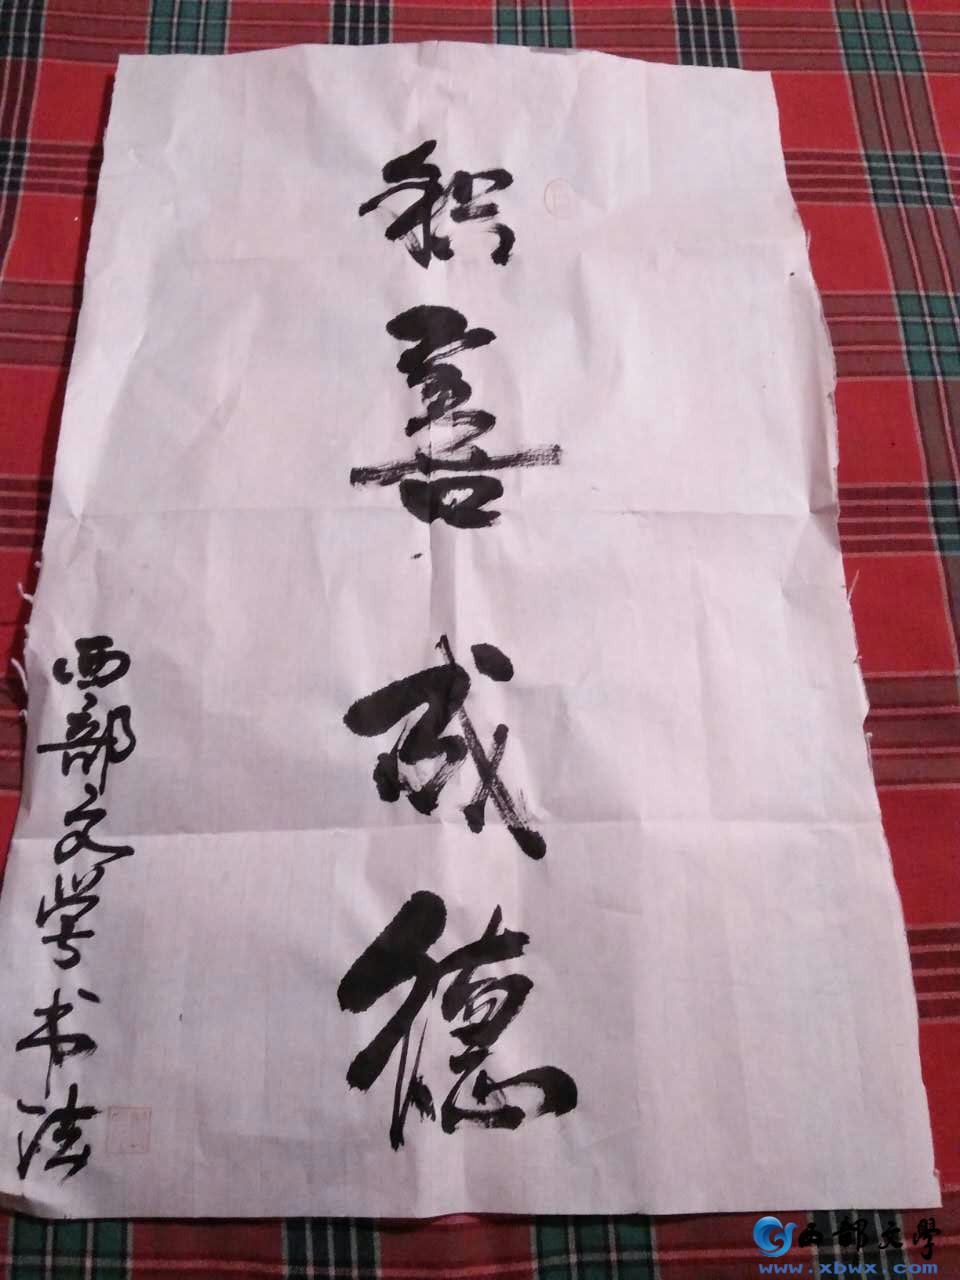 积善成德
西部文学书法
西部文学
www.xbwx.com